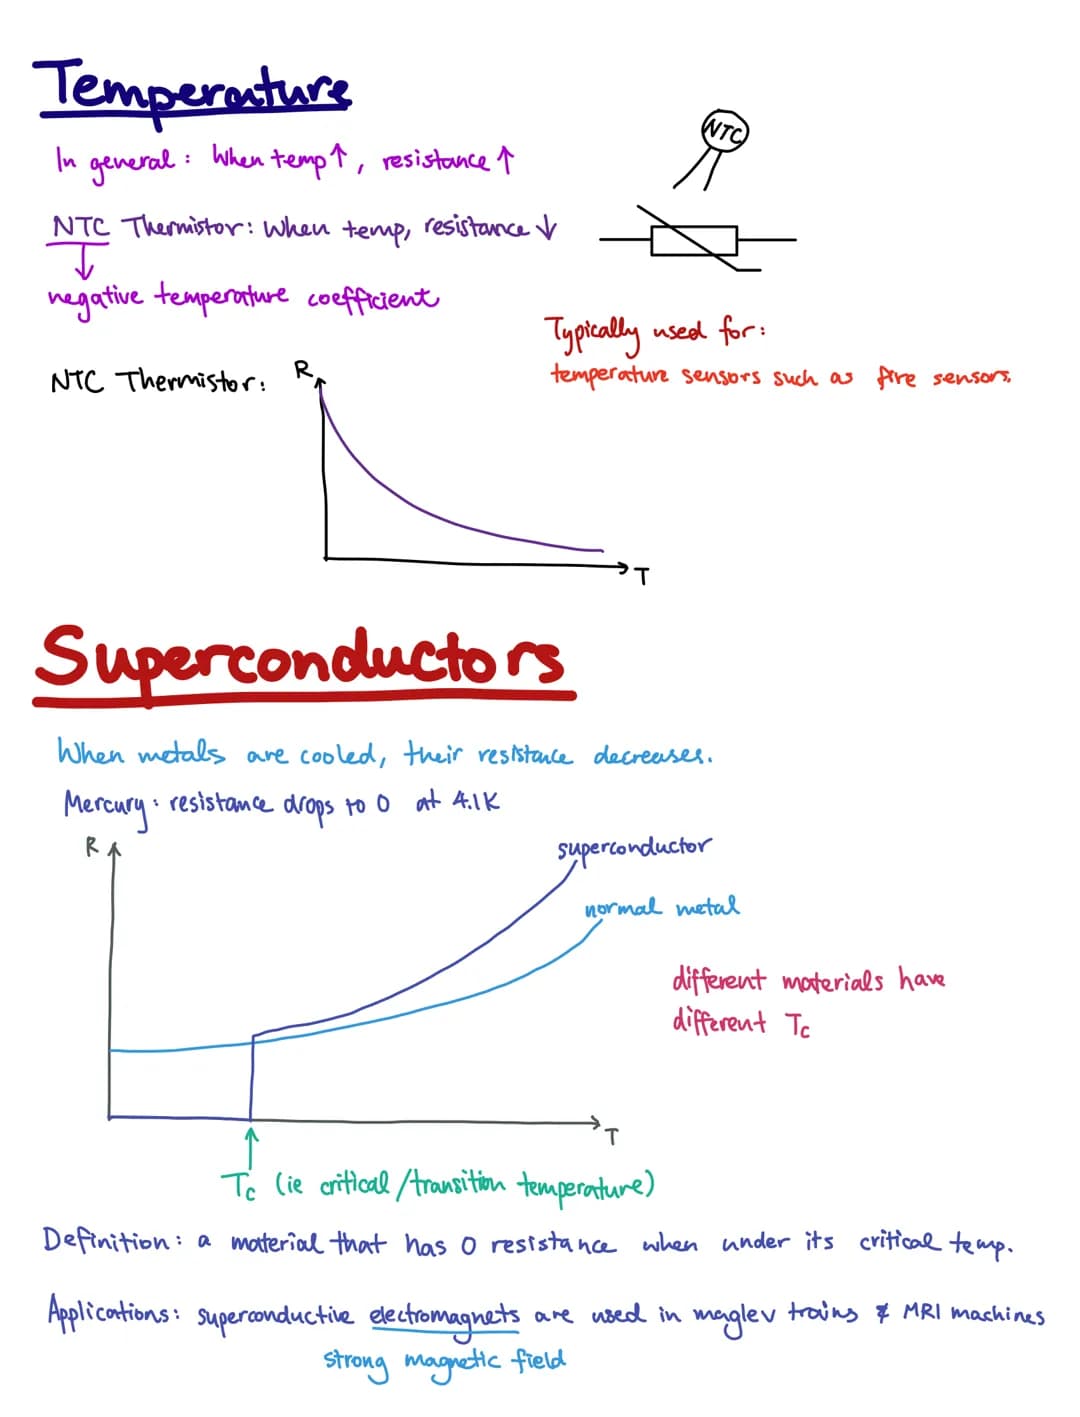 Temperature
NTC
In general: When temp↑, resistance ↑
NTC Thermistor: When temp, resistance ↓
negative temperature coefficient
Typically used for:
temperature sensors such as fire sensors.
NTC Thermistor:
R
T
Superconductors
When metals are cooled, their resistance decreases.
Mercury: resistance drops to 0 at 4.1K
R
superconductor
normal metal
different materials have
different Tc
T
Tc (ie critical/transition temperature)
Definition: a material that has 0 resistance when under its critical temp.
Applications: superconductive electromagnets are used in maglev trains & MRI machines
strong magnetic field